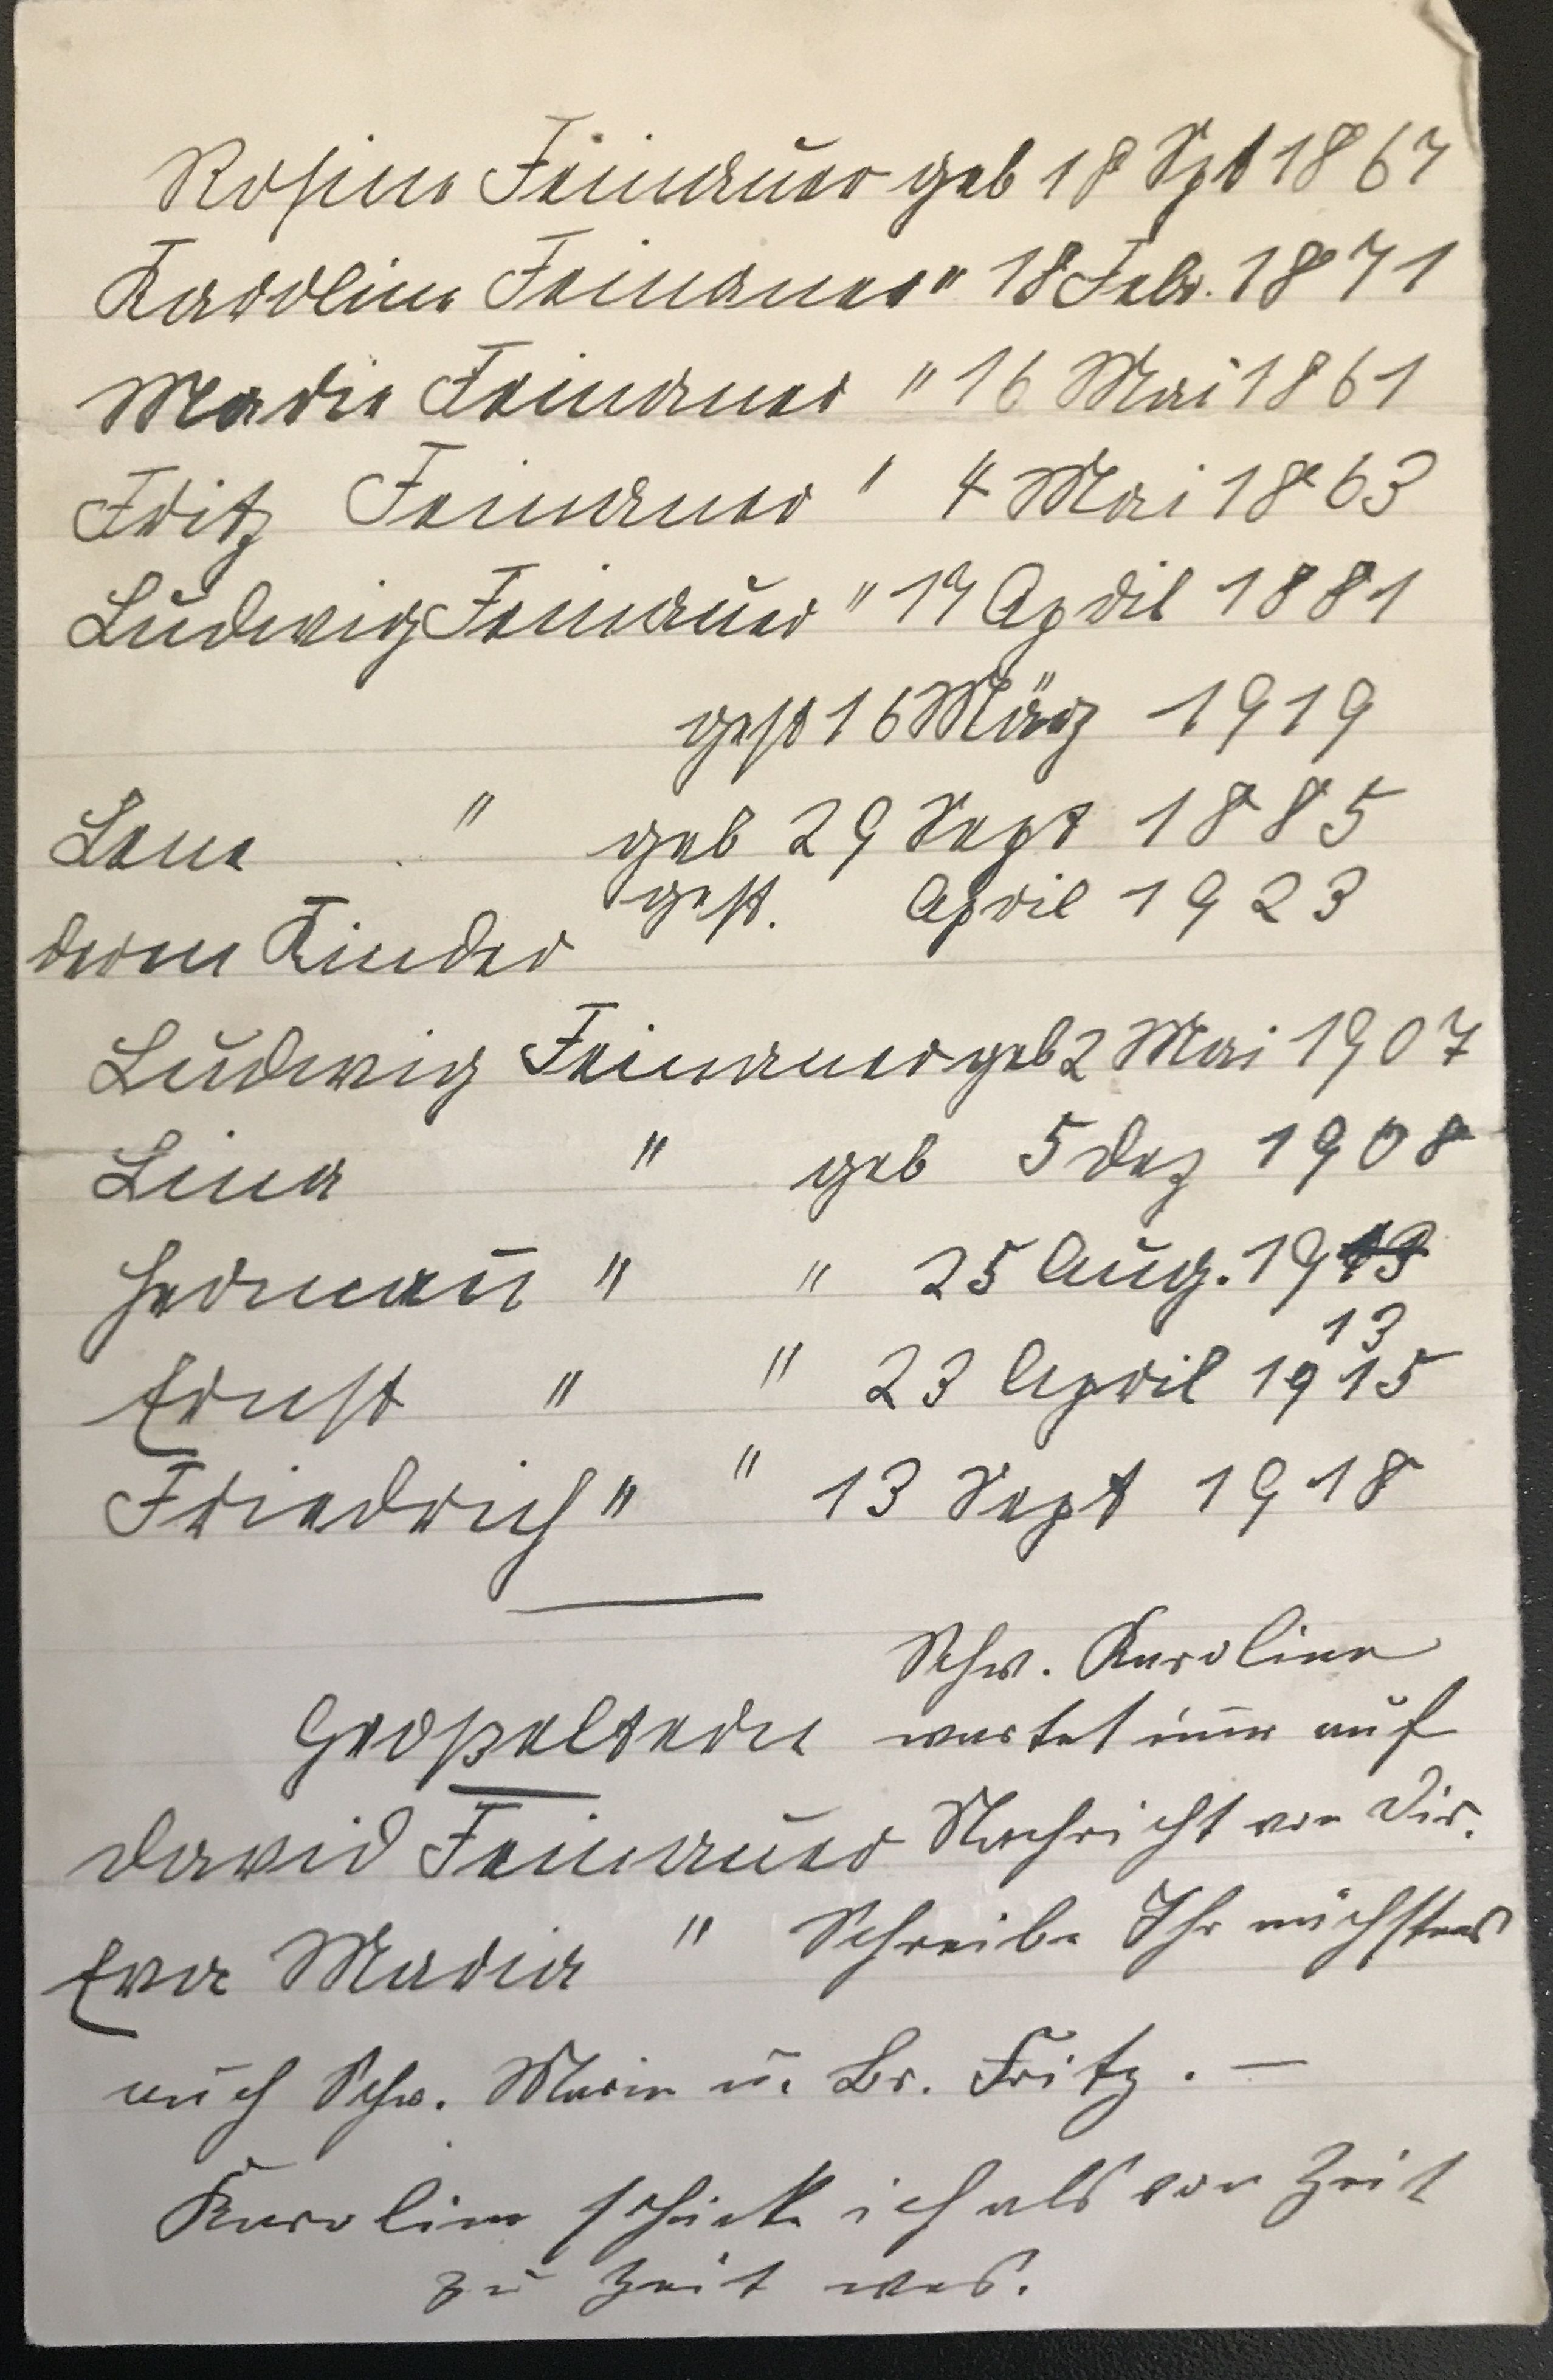 Rosine Feinauer geb 18 Spt 1867
Karoline Feinauer " 18 Febr. 1871
Marie Feinauer " 16 Mai 1861
Fritz Feinauer " 4 Mai 1863
Ludwig Feinauer " 17 April 1881
gest 16 März 1919
Lene " geb 29 Sept 1885
gest. April 1923
deren Kinder
Ludwig Feinauer geb 2 Mai 1907
Lina " geb 5 Dez 1908
Hermañ " " 25 Aug. 1913
13
Ernst " " 23 April 1915
Friedrich " " 13 Sept 1918
Schw. Karoline
Großeltern wartet im̄er auf
David Feinauer Nachricht von Dir.
Eva Maria " Schreibe Ihr nächstens
auch Schw. Marie u. Br. Fritz. —
Karoline schicke ich als von Zeit
zu Zeit was.